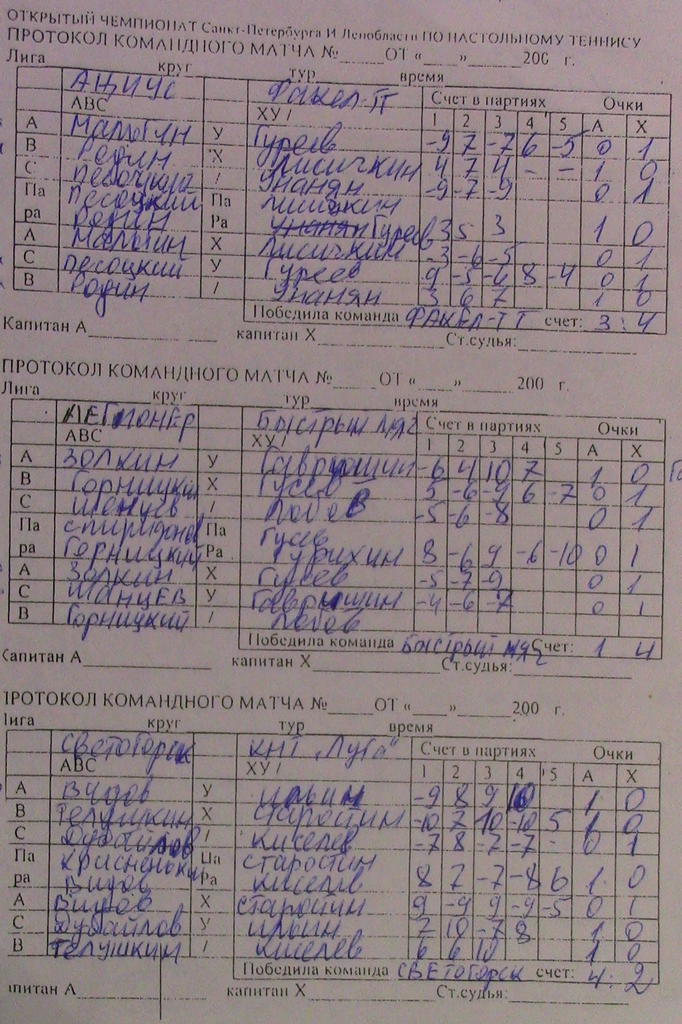 ОТКРЫТЫЙ ЧЕМПИОНАТ Санкт-Петербурга И Ленобласти ПО НАСТОЛЬНОМУ ТЕННИСУ
ПРОТОКОЛ КОМАНДНОГО МАТЧА №_____ ОТ «____» ______ 200 г.
Лига круг тур время
Факел-ТТ Счет в партиях Очки
АВС ХУ/ 1 2 3 4 5 А Х
А Малыгин У Гуреев -9 7 -7 6 -5 0 1
В Родин Х Лисичкин 4 7 4 - - 1 0
С Песоцкий / Унанян -9 -7 -9 0 1
Па Песоцкий Па Лисичкин
ра Родин Ра Гуреев 3 5 3 1 0
А Малыгин Х Лисичкин -3 -6 -5 0 1
С Песоцкий У Гуреев 9 -5 -6 8 -4 0 1
В Родин / Унанян 3 6 7 1 0
Победила команда ФАКЕЛ-ТТ счет: 3:4
Капитан А____________ капитан Х____________ Ст.судья:____________
ПРОТОКОЛ КОМАНДНОГО МАТЧА №_____ ОТ «____» ______ 200 г.
Лига круг тур время
ЛЕГИОНЕР Быстрый мяч Счет в партиях Очки
АВС ХУ/ 1 2 3 4 5 А Х
А Золкин У Гаврюшин -6 4 10 7 1 0
В Горницкий Х Гусев 5 -6 -9 6 -7 0 1
С / Лобов -5 -6 -8 0 1
Па Спиридонов Па Гусев
ра Горницкий Ра Турихин 8 -6 9 -6 -10 0 1
А Золкин Х Гусев -5 -7 -9 0 1
С У Гаврюшин -4 -6 -7 0 1
В Горницкий / Лобов
Победила команда Быстрый мяч Счет: 1 4
Капитан А____________ капитан Х____________ Ст.судья:____________
ПРОТОКОЛ КОМАНДНОГО МАТЧА №_____ ОТ «____» ______ 200 г.
Лига круг тур время
Светогорск КНТ „Луга“ Счет в партиях Очки
АВС ХУ/ 1 2 3 4 5 А Х
А Видов У Ильин -9 8 9 10 1 0
В Телушкин Х Старостин -10 7 10 -10 5 1 0
С Дубайлов / Киселев -7 8 -7 -7 - 0 1
Па Па Старостин
ра Видов Ра Киселев 8 7 -7 -8 6 1 0
А Видов Х Старостин 9 -9 9 -9 -5 0 1
С Дубайлов У Ильин 7 10 -7 8 1 0
В Телушкин / Киселев 6 6 10 1 0
Победила команда СВЕТОГОРСК счет: 4:2
апитан А____________ капитан Х____________ Ст.судья:____________